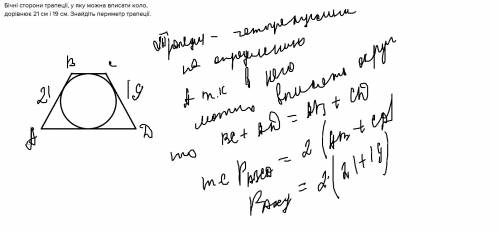 Бічні сторони трапеції, у яку можна вписати коло,
дорівнює 21 см і 19 см. Знайдіть периметр трапеції.
B C
21 19
A D
по определению
А т.к в него
можно вписать круг
то BC + AD = AB + CD
2 (AB + CD)
= 2·(21+19)